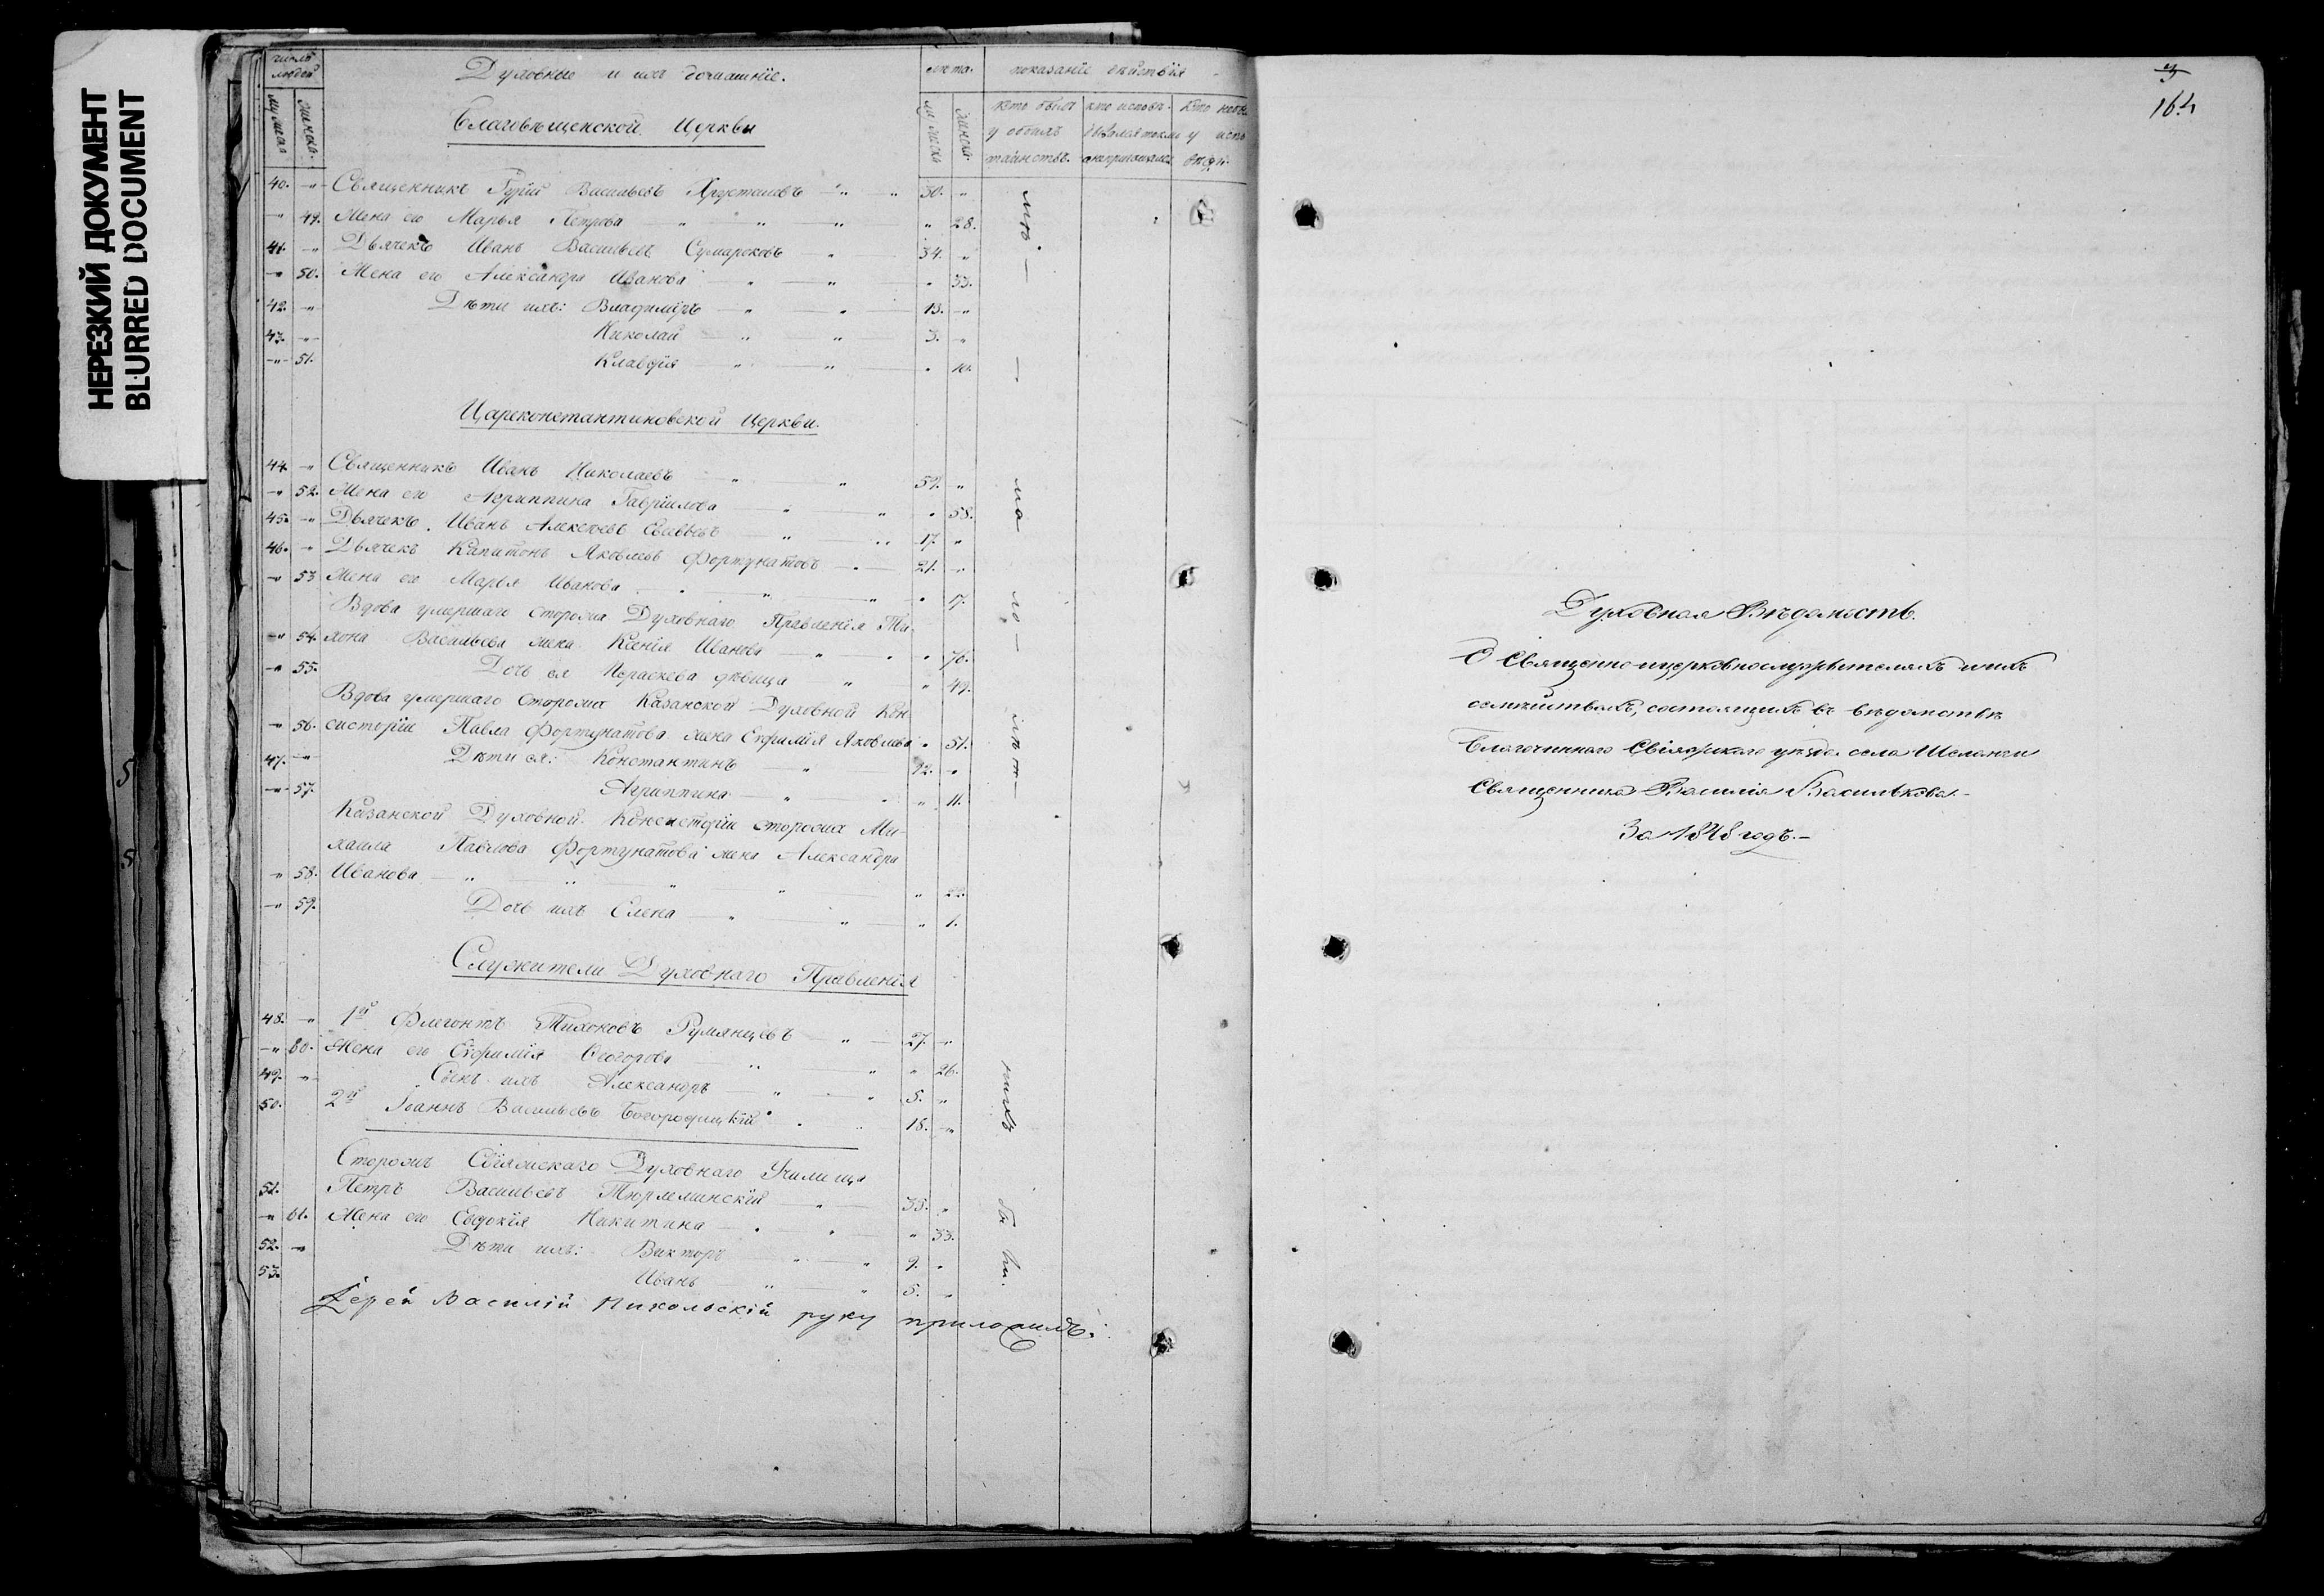 НЕРЕЗКИЙ ДОКУМЕНТ
BLURRED DOCUMENT
число людей
Духовные и ихъ домашніе.
лѣта.
показаніе дѣйствія
Благовѣщенской Церкви
кто былъ у обоихъ таинствъ.
40. -"- Священникъ Гурій Васильевъ Хрусталевъ " " 30. "
-"- 49. Жена его Марья Петрова " " " " 28.
41. -"- Дьячекъ Иванъ Васильевъ Сумароковъ " 34. "
-"- 50. Жена его Александра Иванова " " " 33.
42. -"- Дѣти ихъ: Владиміръ " " 13. "
43. -"- Николай " " 3. "
-"- 51. Клавдія " " " 10.
Цареконстантиновской Церкви.
44. -"- Священникъ Иванъ Николаевъ " " 59. "
-"- 52. Жена его Агриппина Гавріилова " " " 58.
45. -"- Дьячекъ Иванъ Алексѣевъ " " 17. "
46. -"- Дьячекъ Капитонъ Яковлевъ Фортунатовъ " 21. "
-"- 53 Жена его Марья Иванова " " " " 17.
Вдова умершаго сторожа Духовнаго Правленія Ти-
-"- 54. хона Васильева жена Ксенія Иванова " " " 70.
-"- 55. Дочь ея Параскева дѣвица " " 49.
Вдова умершаго Сторожа Казанской Духовной Кон
-"- 56. систоріи Павла Фортунатова жена Евфимія Яковлева " 51.
47. -"- Дѣти ея: Константинъ " 12. "
-"- 57. Агриппина " " " 11.
Казанской Духовной Консисторіи сторожа Ми-
хаила Павлова Фортунатова жена Александра
-"- 58. Иванова " " " " " 22.
-"- 59. Дочь ихъ Елена " " " 1.
Служители Духовнаго Правленія
48. -"- 1й Флегонтъ Тихоновъ Румянцевъ " 27. "
-"- 60. Жена его Евфимія Ѳеодорова " " " 26.
49. -"- Сынъ ихъ Александръ " " 5. "
50. 2й Іоаннъ Васильевъ Богородицкій " " 18. "
Сторожъ Свіяжскаго Духовнаго Училища
51. Петръ Васильевъ Тюрлеминскій " 35. "
-"- 61. Жена его Евдокія Никитина " " " 33.
52. -"- Дѣти ихъ: Викторъ " " 9. "
53. Иванъ " " 5. "
Іерей Василій Никольскій руку приложилъ.
164
Духовная Вѣдомость.
О Священно-церковнослужителяхъ и ихъ
семействахъ, состоящихъ въ вѣдомствѣ
Благочиннаго Свіяжскаго уѣзда села Шеланги
Священника Василія Василькова.-
За 1848 годъ.-